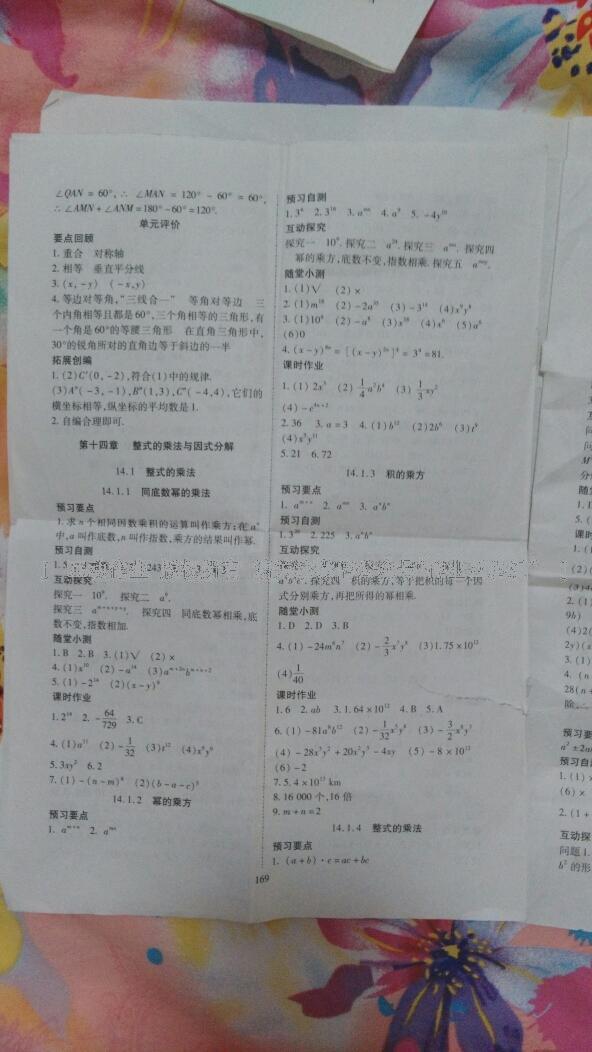 ∠QAN = 60°, ∴ ∠MAN = 120° - 60° = 60°,
∴ ∠AMN + ∠ANM = 180° - 60° = 120°.
单元评价
要点回顾
1. 重合 对称轴
2. 相等 垂直平分线
3. (x, -y) (-x, y)
4. 等边对等角,“三线合一” 等角对等边 三
个内角相等且都是60°,三个角相等的三角形,有
一个角是60°的等腰三角形 在直角三角形中,
30°的锐角所对的直角边等于斜边的一半
拓展创编
1. (2)C'(0, -2),符合(1)中的规律.
(3)A"(-3, -1),B"(1,3),C"(-4,4),它们的
横坐标相等,纵坐标的平均数是1.
2. 自编合理即可.
第十四章 整式的乘法与因式分解
14.1 整式的乘法
14.1.1 同底数幂的乘法
预习要点
1. 求n个相同因数乘积的运算叫作乘方;在aⁿ
中,a叫作底数,n叫作指数,乘方的结果叫作幂.
预习自测
互动探究
探究一 10⁹. 探究二 a⁹.
探究三 探究四 同底数幂相乘,底
数不变,指数相加.
随堂小测
1. B 2. B 3. (1)√ (2)×
4. (1)x¹⁰ (2) -a¹⁴ (3)
5. (1) -2¹⁶ (2)(x-y)⁹
课时作业
1. 2¹⁹ 2. -64/729 3. C
4. (1)a¹¹ (2) -1/32 (3)t¹² (4)x⁶y⁶
5. 3xy² 6. 2
7. (1) -(n-m)⁸ (2)(b-a-c)⁵
14.1.2 幂的乘方
预习要点
1. aᵐ⁺ⁿ 2. aᵐⁿ
169
预习自测
1. 3⁶ 2. 3¹⁰ 3. aᵐⁿ 4. a⁹ 5. -4y¹⁰
互动探究
探究一 10⁹. 探究二 a²⁸. 探究三 aᵐⁿ. 探究四
幂的乘方,底数不变,指数相乘. 探究五 aᵐⁿᵖ.
随堂小测
1. (1)√ (2)×
2. (1)m¹⁸ (2) -2a²⁰ (3) -3¹⁴ (4)x⁸y⁸
3. (1)10⁶ (2) -a⁸ (3)x¹⁸ (4)x⁶ (5)a⁶
(6)0
4. (x-y)⁸ⁿ = [(x-y)²ⁿ]⁴ = 3⁴ = 81.
课时作业
1. (1)2x³ (2)1/4 a²b⁴ (3)1/3 xy²
(4) -c⁴ⁿ⁺²
2. 36 3. a=3 4. (1)b¹² (2)2b⁶ (3)t⁹
(4)x⁵y¹¹
5. 21 6. 72
14.1.3 积的乘方
预习要点
1. aᵐ⁺ⁿ 2. aᵐⁿ 3. aⁿbⁿ
预习自测
1. 3²⁰ 2. 225 3. aⁿbⁿ
互动探究
探究四 积的乘方,等于把积的每一个因
式分别乘方,再把所得的幂相乘.
随堂小测
1. D 2. D 3. B
4. (1) -24m⁶n⁷ (2) -2/3 x⁷y⁸ (3)1.75×10¹³
(4)1/40
课时作业
1. 6 2. ab 3. 1.64×10¹² 4. B 5. A
6. (1) -81a⁸b¹² (2) -1/32 x⁵y⁶ (3) -3/2 x⁸y⁷
(4) -28x³y² + 20x²y³ - 4xy (5) -8×10¹³
(6) -2
7. 5.4×10¹³ km
8. 16 000个,16倍
9. m+n=2
14.1.4 整式的乘法
预习要点
1. (a+b)·c=ac+bc
预习自
互动探
问题1.
b²的形